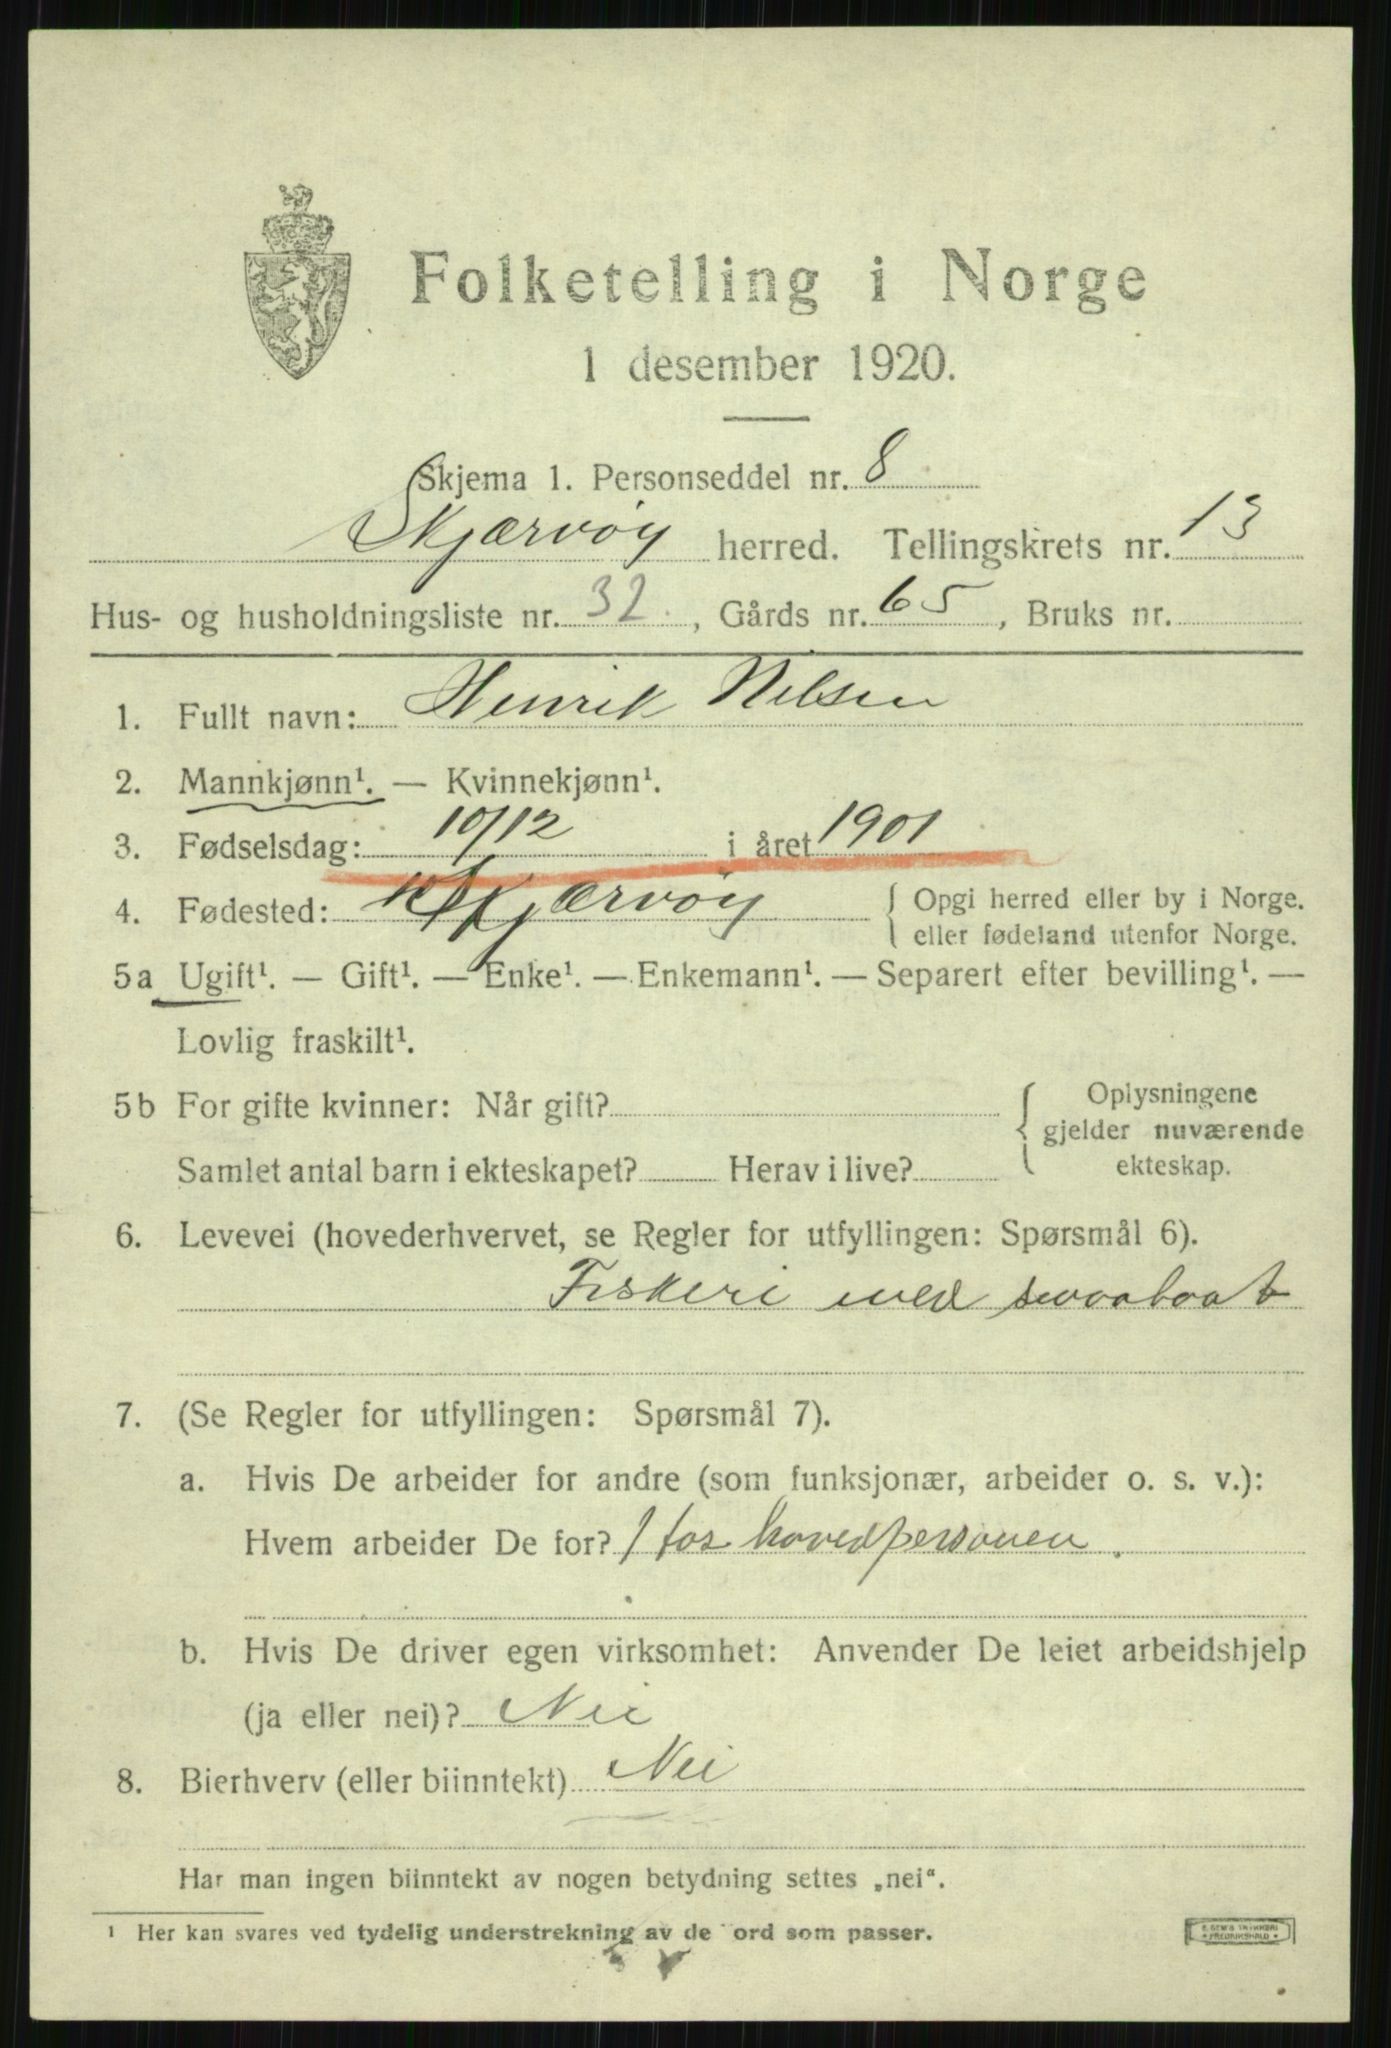 Folketelling i Norge
1 desember 1920.
Skjema 1. Personseddel nr. 8
Skjærvøy herred. Tellingskrets nr. 13
Hus- og husholdningsliste nr. 32, Gårds nr. 65, Bruks nr.
1. Fullt navn: Henrik Nilsen
2. Mannkjønn¹. — Kvinnekjønn¹.
3. Fødselsdag: 10/12 i året 1901
4. Fødested: Skjærvøy { Opgi herred eller by i Norge.
eller fødeland utenfor Norge.
5a Ugift¹. — Gift¹. — Enke¹. — Enkemann¹. — Separert efter bevilling¹. —
Lovlig fraskilt¹.
5b For gifte kvinner: Når gift? { Oplysningene
gjelder nuværende
Samlet antal barn i ekteskapet? Herav i live? ekteskap.
6. Levevei (hovederhvervet, se Regler for utfyllingen: Spørsmål 6).
Fiskeri med smaabaat
7. (Se Regler for utfyllingen: Spørsmål 7).
a. Hvis De arbeider for andre (som funksjonær, arbeider o. s. v.):
Hvem arbeider De for? hovedpersonen.
b. Hvis De driver egen virksomhet: Anvender De leiet arbeidshjelp
(ja eller nei)? Nei
8. Bierhverv (eller biinntekt) Nei
Har man ingen biinntekt av nogen betydning settes „nei“.
¹ Her kan svares ved tydelig understrekning av de ord som passer.